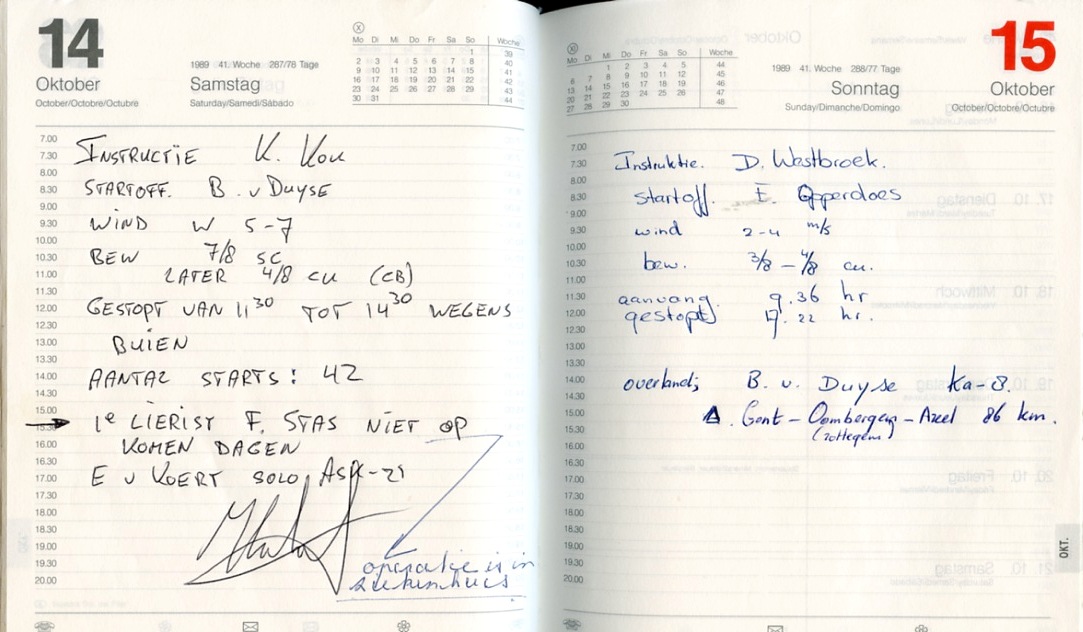 14
Oktober
October/Octobre/Octubre
1989 41. Woche 287/78 Tage
Samstag
Saturday/Samedi/Sábado
X
Mo Di Mi Do Fr Sa So Woche
1 39
2 3 4 5 6 7 8 40
9 10 11 12 13 14 15 41
16 17 18 19 20 21 22 42
23 24 25 26 27 28 29 43
30 31 44
7.00
7.30 INSTRUCTIE K. KOU
8.00
8.30 STARTOFF. B. v DUYSE
9.00
9.30 WIND W 5-7
10.00
10.30 BEW 7/8 SC
11.00 LATER 4/8 CU (CB)
11.30
12.00 GESTOPT VAN 11 30 TOT 14 30 WEGENS
12.30
13.00 BUIEN
13.30
14.00 AANTAL STARTS: 42
14.30
15.00
15.30 → 1e LIERIST F. STAS NIET OP
16.00 KOMEN DAGEN
16.30
17.00 E v KOERT SOLO ASK-21
17.30
18.00
18.30
19.00
19.30 operatie is in
20.00 ziekenhuis
XI
Mo Di Mi Do Fr Sa So Woche
1 2 3 4 5 44
6 7 8 9 10 11 12 45
13 14 15 16 17 18 19 46
20 21 22 23 24 25 26 47
27 28 29 30 48
1989 41. Woche 288/77 Tage
Sonntag
Sunday/Dimanche/Domingo
15
Oktober
October/Octobre/Octubre
7.00
7.30 Instruktie. D. Westbroek.
8.00
8.30 startoff. E. Opperdoes
9.00
9.30 wind 2-4 m/s
10.00
10.30 bew. 3/8 - 4/8 cu.
11.00
11.30 aanvang. 9.36 hr
12.00 gestopt 17.22 hr.
12.30
13.00
13.30
14.00 overland; B. v. Duyse Ka-8.
14.30
15.00 Δ. Gent - Oombergen - Axel 86 km.
15.30 (zottegem)
16.00
16.30
17.00
17.30
18.00
18.30
19.00
19.30
20.00
OKT.